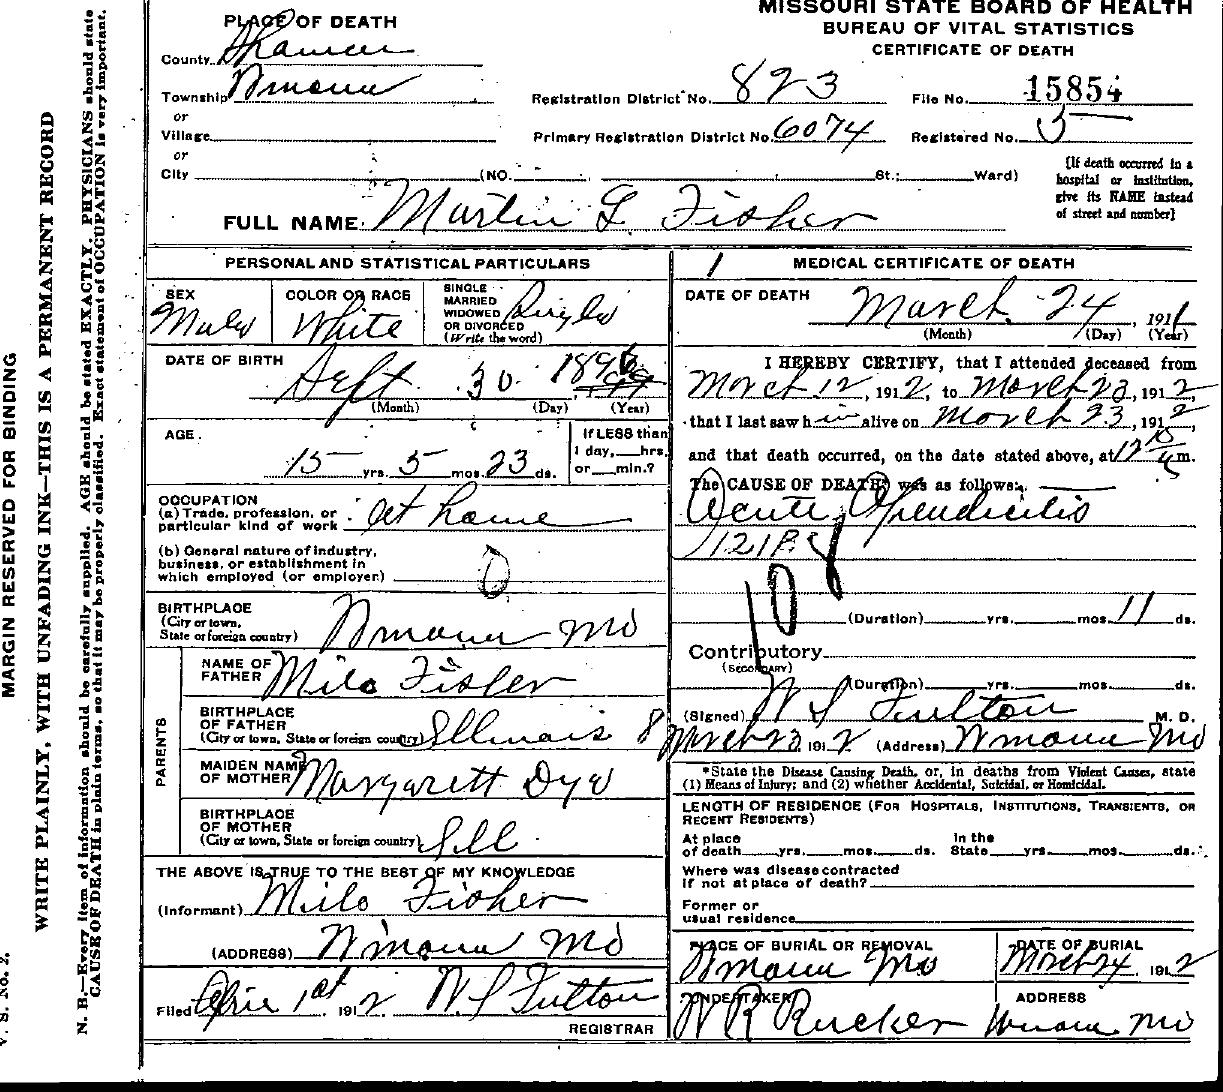 MISSOURI STATE BOARD OF HEALTH
BUREAU OF VITAL STATISTICS
CERTIFICATE OF DEATH
PLACE OF DEATH
County
Township
or
Village
or
City (NO. St.; Ward)
Registration District No. 823
File No. 15854
Primary Registration District No. 6074
Registered No. 5
[If death occurred in a hospital or institution, give its NAME instead of street and number]
FULL NAME: Martin L Fisher
PERSONAL AND STATISTICAL PARTICULARS
SEX Male
COLOR OR RACE White
SINGLE MARRIED WIDOWED OR DIVORCED (Write the word) Single
DATE OF BIRTH Sept 30 1896
(Month) (Day) (Year)
AGE 15 yrs. 5 mos. 23 ds.
If LESS than 1 day, hrs. or min.?
OCCUPATION
(a) Trade, profession, or particular kind of work at home
(b) General nature of industry, business, or establishment in which employed (or employer) 0
BIRTHPLACE (City or town, State or foreign country) Mo
PARENTS
NAME OF FATHER Milo Fisher
BIRTHPLACE OF FATHER (City or town, State or foreign country) Illinois
MAIDEN NAME OF MOTHER Margarett Dye
BIRTHPLACE OF MOTHER (City or town, State or foreign country) Ill
THE ABOVE IS TRUE TO THE BEST OF MY KNOWLEDGE
(Informant) Milo Fisher
(ADDRESS) Mo
Filed April 1st 1912 W S Fulton
REGISTRAR
1 MEDICAL CERTIFICATE OF DEATH
DATE OF DEATH March 24, 1911
(Month) (Day) (Year)
I HEREBY CERTIFY, that I attended deceased from
March 12, 1912, to March 23, 1912,
that I last saw him alive on March 23, 1912,
and that death occurred, on the date stated above, at 12 m.
The CAUSE OF DEATH* was as follows:
Acute Apendicitis
10 8
(Duration) yrs. mos. 11 ds.
Contributory
(SECONDARY)
(Duration) yrs. mos. ds.
(Signed) W S Fulton M. D.
March 23 1912 (Address) Mo
*State the Disease Causing Death, or, in deaths from Violent Causes, state (1) Means of Injury; and (2) whether Accidental, Suicidal, or Homicidal.
LENGTH OF RESIDENCE (FOR HOSPITALS, INSTITUTIONS, TRANSIENTS, OR RECENT RESIDENTS)
At place of death yrs. mos. ds. In the State yrs. mos. ds.
Where was disease contracted if not at place of death?
Former or usual residence
PLACE OF BURIAL OR REMOVAL Mo
DATE OF BURIAL March 24 1912
UNDERTAKER W R Rucker
ADDRESS Mo
MARGIN RESERVED FOR BINDING
WRITE PLAINLY, WITH UNFADING INK—THIS IS A PERMANENT RECORD
N. B.—Every item of information should be carefully supplied. AGE should be stated EXACTLY. PHYSICIANS should state
CAUSE OF DEATH in plain terms, so that it may be properly classified. Exact statement of OCCUPATION is very important.
V. S. No. 2.